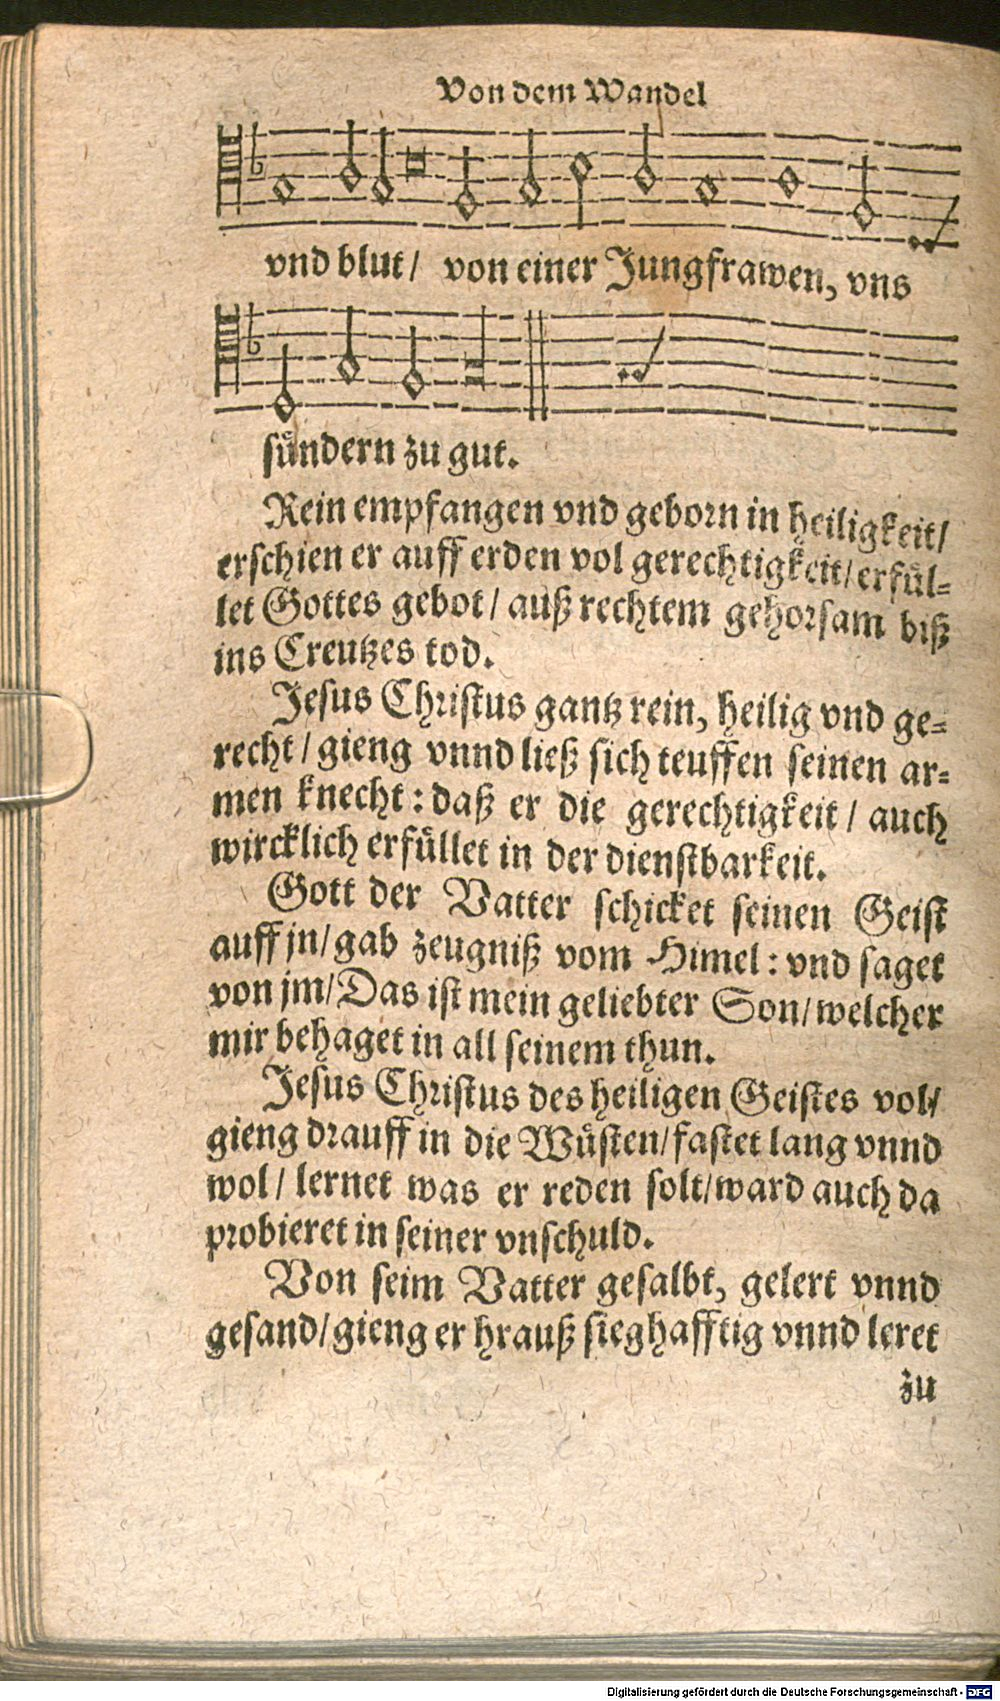 Von dem Wandel
vnd blut/ von einer Jungfrawen, vns
sündern zu gut.
Rein empfangen vnd geborn in heiligkeit/
erschien er auff erden vol gerechtigkeit/erfül=
let Gottes gebot/ auß rechtem gehorsam biß
ins Creutzes tod.
Jesus Christus gantz rein, heilig vnd ge=
recht/gieng vnnd ließ sich teuffen seinen ar=
men knecht: daß er die gerechtigkeit/ auch
wircklich erfüllet in der dienstbarkeit.
Gott der Vatter schicket seinen Geist
auff jn/gab zeugniß vom Himel: vnd saget
von jm/Das ist mein geliebter Son/welcher
mir behaget in all seinem thun.
Jesus Christus des heiligen Geistes vol/
gieng drauff in die Wüsten/fastet lang vnnd
wol/ lernet was er reden solt/ward auch da
probieret in seiner vnschuld.
Von seim Vatter gesalbt, gelert vnnd
gesand/gieng er hrauß sieghafftig vnnd leret
zu
Digitalisierung gefördert durch die Deutsche Forschungsgemeinschaft - DFG